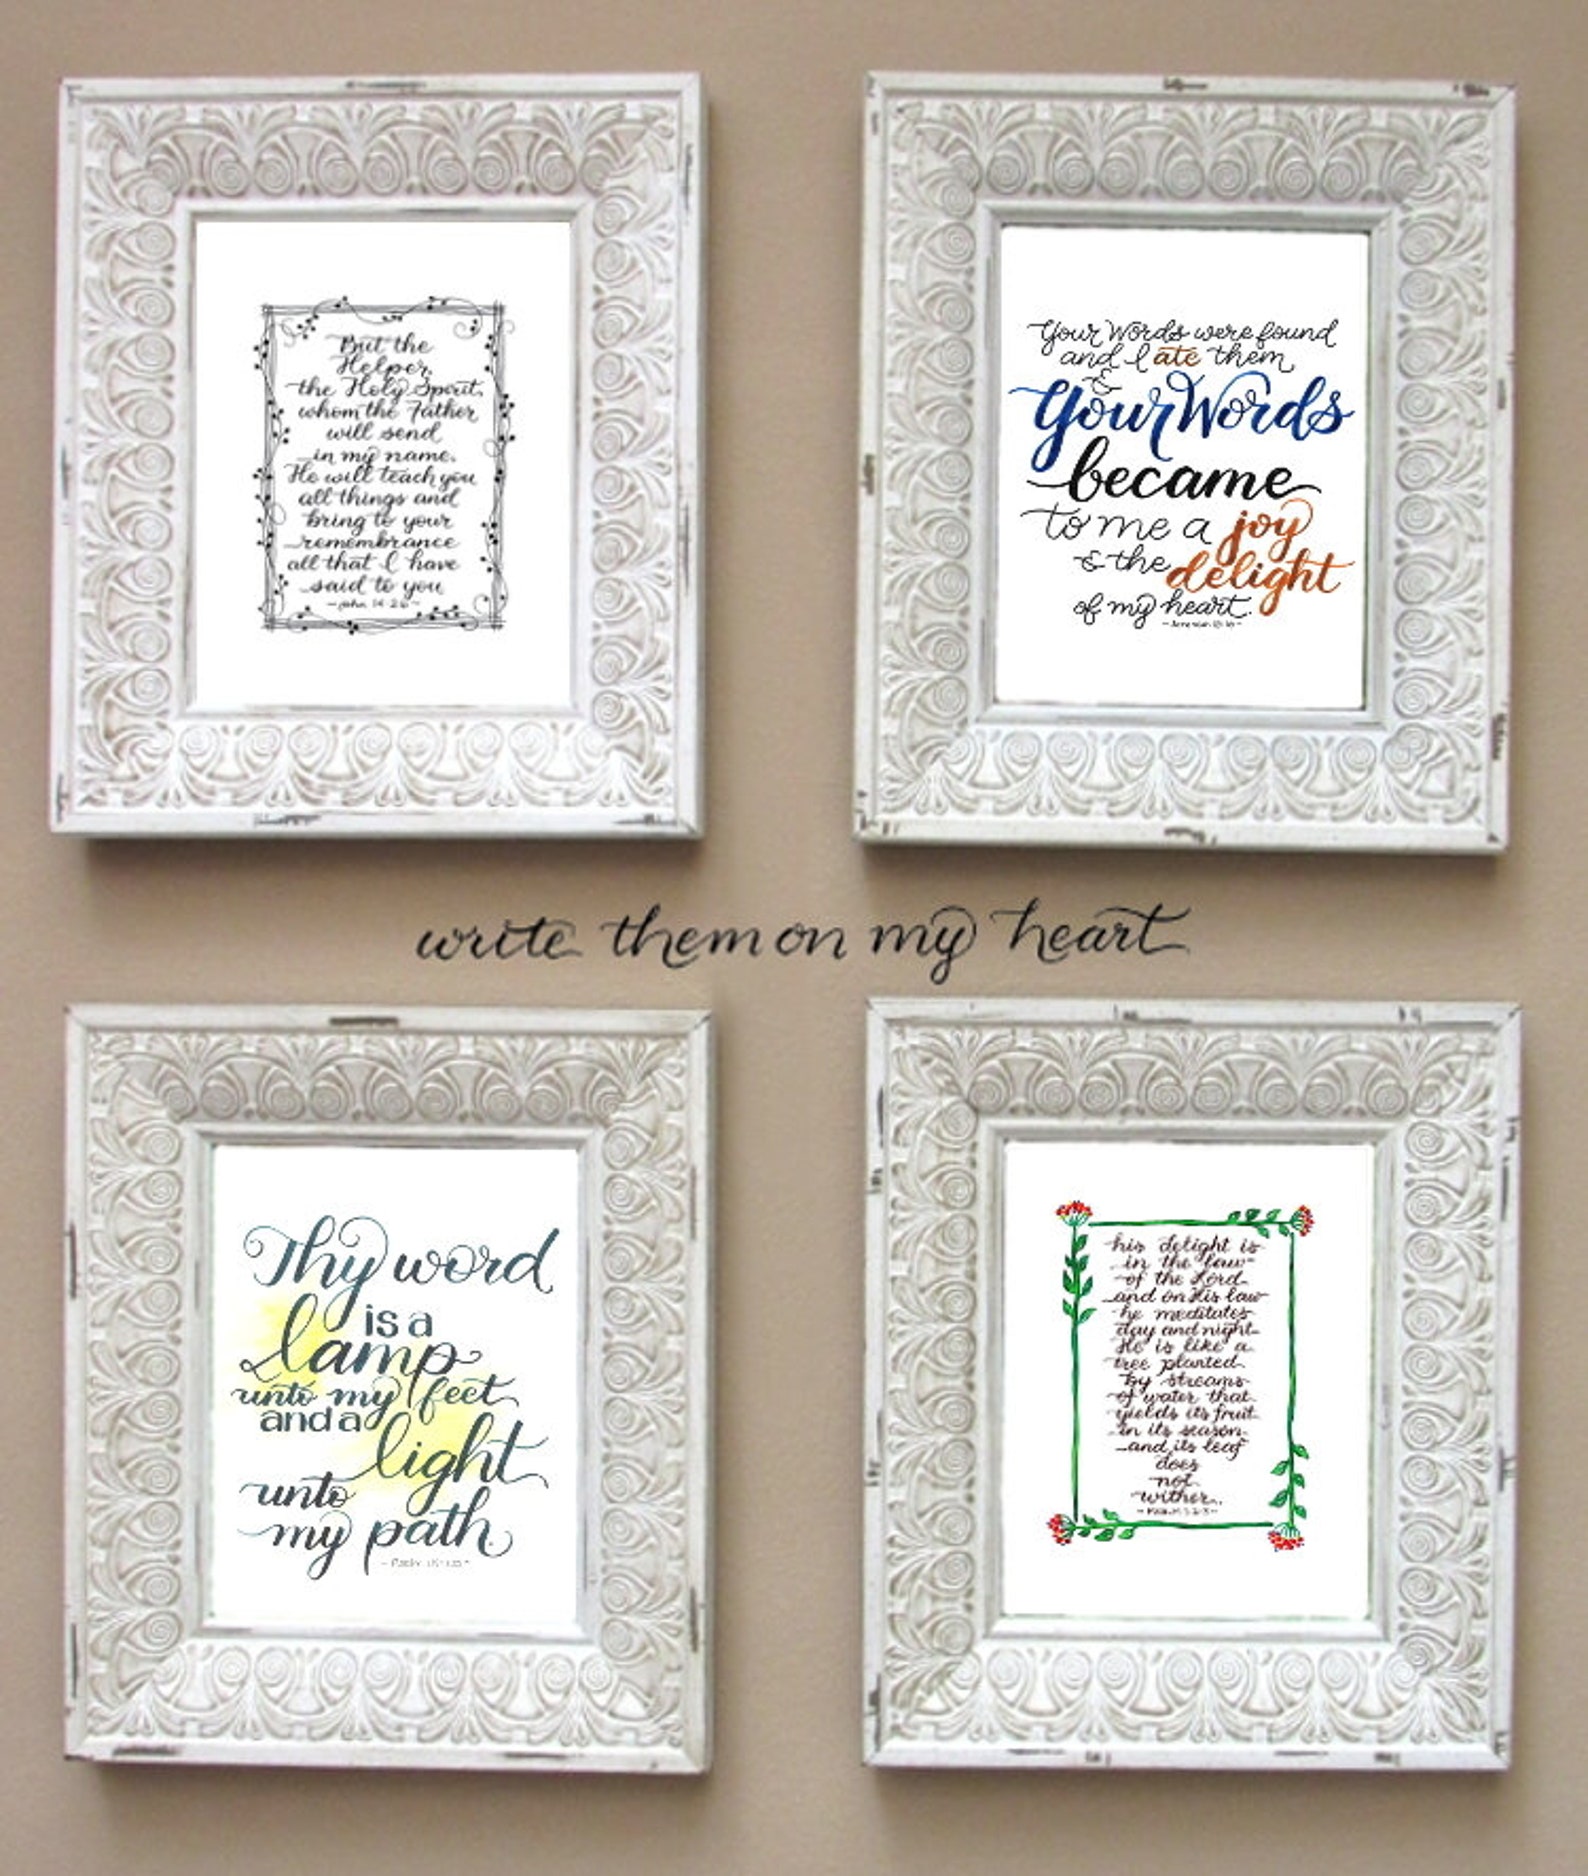 But the
Helper,
the Holy Spirit,
whom the Father
will send
in my name,
He will teach you
all things and
bring to your
remembrance
all that I have
said to you
- John 14:26 -
Your Words were found
and I ate them
&
Your Words
became
to me a joy
& the delight
of my heart.
- Jeremiah 15:16 -
write them on my heart
Thy word
is a
lamp
unto my feet
and a
light
unto
my path.
- Psalm 119:105 -
his delight is
in the law
of the Lord
and on His law
he meditates
day and night
He is like a
tree planted
by streams
of water that
yields its fruit
in its season
and its leaf
does
not
wither...
- Psalm 1:2-3 -